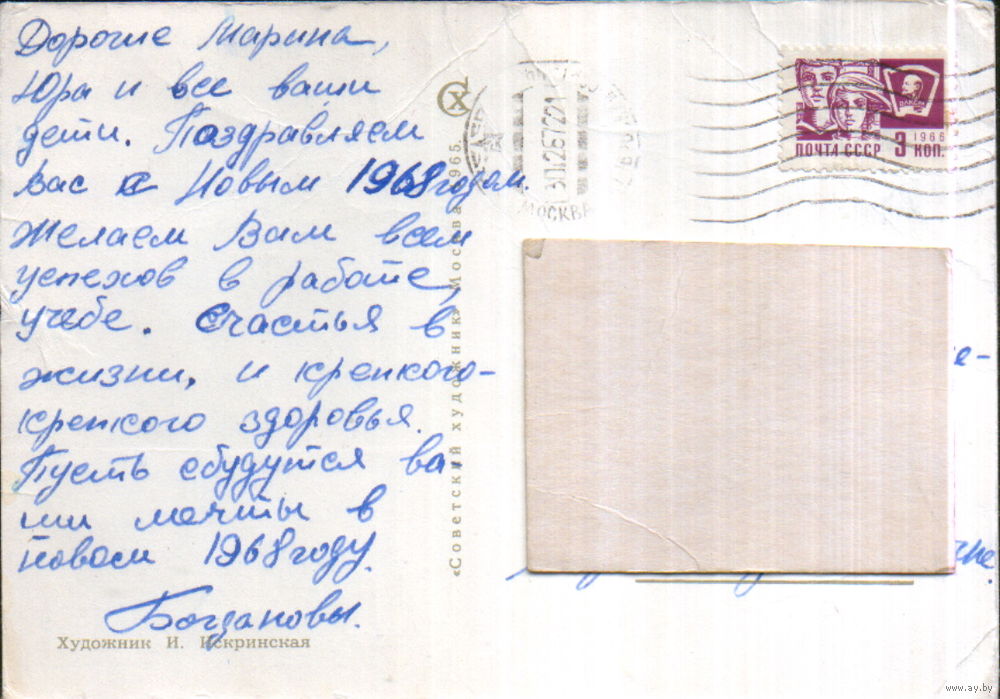 Дорогие Марина,
Юра и все ваши
дети. Поздравляем
вас с Новым 1968 годом.
Желаем Вам всем
успехов в работе,
учебе. Счастья в
жизни, и крепкого-
крепкого здоровья.
Пусть сбудутся ва-
ши мечты в
новом 1968 году.
Богдановы.
Художник И. Искринская
«Советский художник» Москва 1965.
МОСКВА
ВЛКСМ
1966
ПОЧТА СССР 3 КОП.
е-
не.
www.ay.by